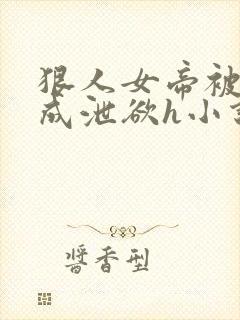 狠人女帝被
成泄欲h小
醬香型